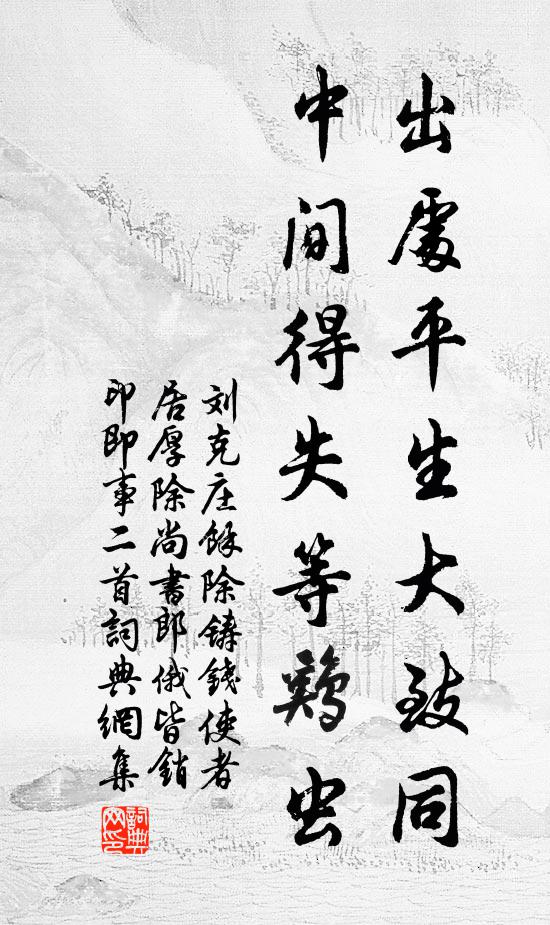 出處平生大致同
中间得失等鸡虫
刘克庄馀除铸錢使者
居厚除尚書郎俄皆銷
印即事二首詞典網集
詞典網印